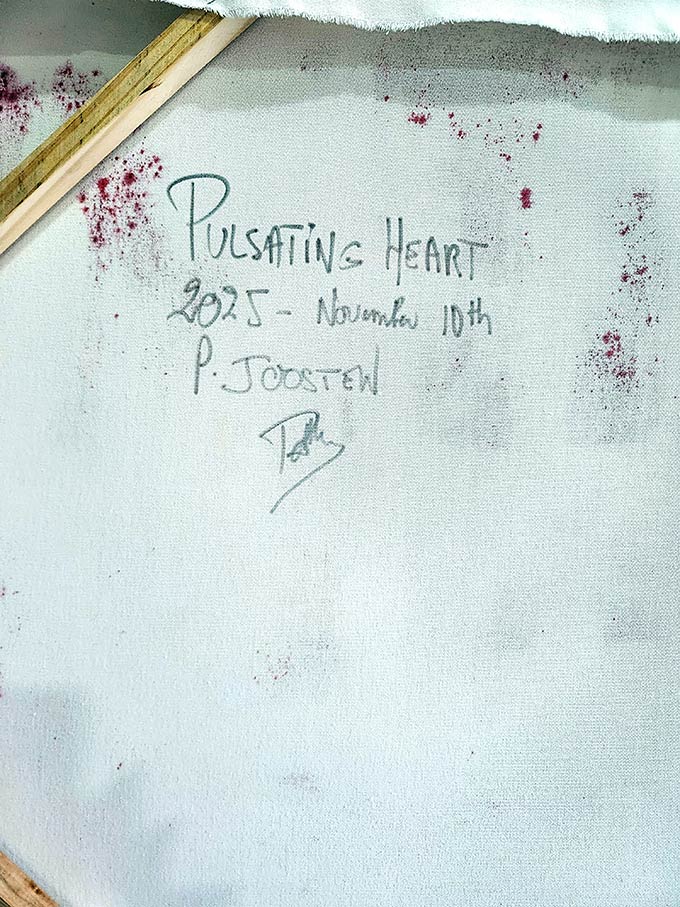 PULSATING HEART
2025 - November 10th
P. JOOSTEN